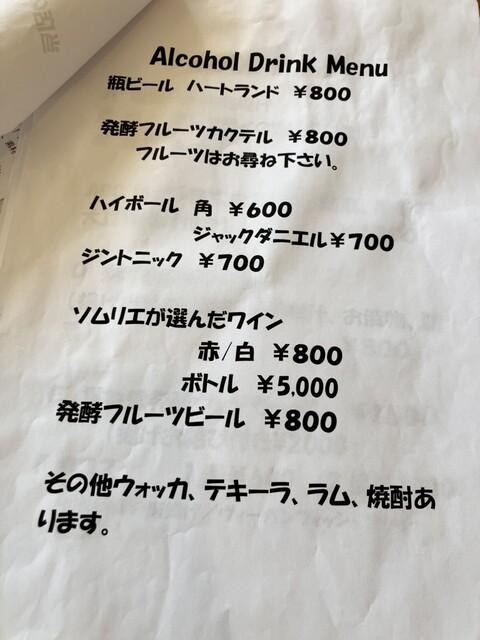 Alcohol Drink Menu
瓶ビール ハートランド ¥800
発酵フルーツカクテル ¥800
フルーツはお尋ね下さい。
ハイボール 角 ¥600
ジャックダニエル¥700
ジントニック ¥700
ソムリエが選んだワイン
赤/白 ¥800
ボトル ¥5,000
発酵フルーツビール ¥800
その他ウォッカ、テキーラ、ラム、焼酎あ
ります。